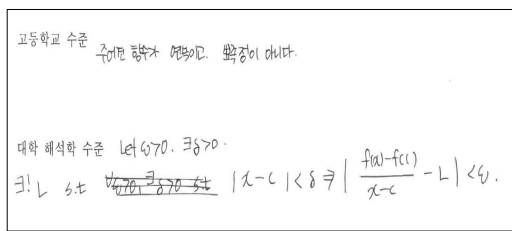 고등학교 수준 주어진 함수가 연속이고. 뾰족점이 아니다.
대학 해석학 수준 Let ε>0. ∃δ>0.
∃! L s.t ∀ε>0, ∃δ>0 s.t |x-c|<δ ⇒ | f(x)-f(c) / x-c - L | < ε.